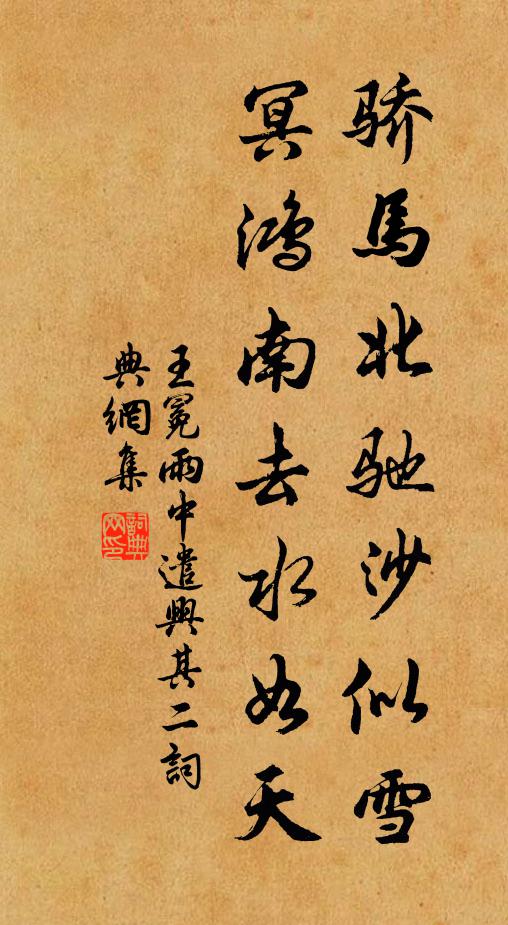 骄馬北驰沙似雪
冥鴻南去水如天
王冕雨中遣興其二詞
典網集
詞典网印